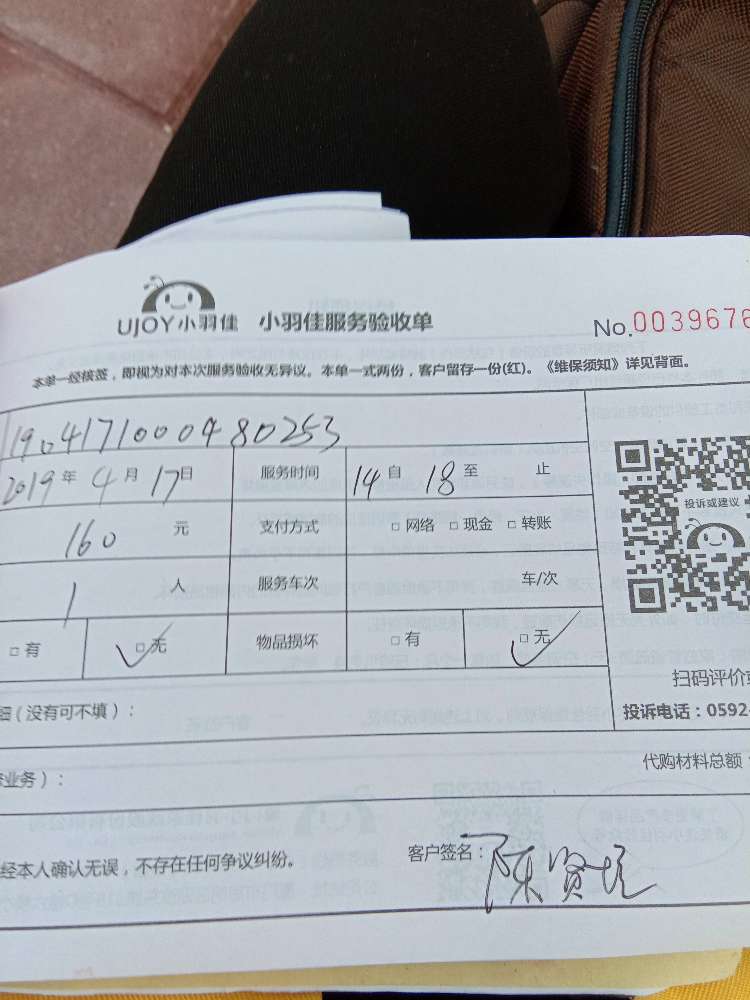 UJOY小羽佳 小羽佳服务验收单 No.0039676
本单一经核签，即视为对本次服务验收无异议。本单一式两份，客户留存一份(红)。《维保须知》详见背面。
190417100048 0253
2019年 4月 17日 服务时间 14自 18至 止
投诉或建议
160 元 支付方式 □ 网络 □ 现金 □ 转账
1 人 服务车次 车/次
□ 有 □ 无 物品损坏 □ 有 □ 无
扫码评价或
细（没有可不填）： 投诉电话：0592-
业务）： 代购材料总额：
经本人确认无误，不存在任何争议纠纷。 客户签名：陈贤